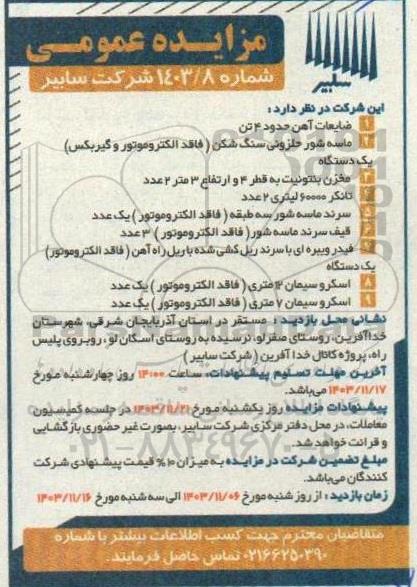 مزایده عمومی
شماره ۱۴۰۳/۸ شرکت سابیر
سابیر
این شرکت در نظر دارد :
۱ ضایعات آهن حدود ۴ تن
۲ ماسه شور حلزونی سنگ شکن ( فاقد الکتروموتور و گیربکس)
یک دستگاه
۳ مخزن بنتونیت به قطر ۴ و ارتفاع ۳ متر ۲ عدد
۴ تانکر ۶۰۰۰۰ لیتری ۲ عدد
۵ سرند ماسه شور سه طبقه ( فاقد الکتروموتور ) یک عدد
۶ قیف سرند ماسه شور ( فاقد الکتروموتور ) ۳ عدد
۷ فیدر ویبره ای با سرند ریل کشی شده با ریل راه آهن ( فاقد الکتروموتور)
یک دستگاه
۸ اسکرو سیمان ۱۲ متری ( فاقد الکتروموتور ) یک عدد
۹ اسکرو سیمان ۷ متری ( فاقد الکتروموتور ) یک عدد
نشانی محل بازدید : مستقر در استان آذربایجان شرقی، شهرستان
خداآفرین، روستای صفرلو، نرسیده به روستای اسکان لو ، روبروی پلیس
راه، پروژه کانال خدا آفرین ( شرکت سابیر )
آخرین مهلت تسلیم پیشنهادات: ساعت ۱۴:۰۰ روز چهارشنبه مورخ
۱۴۰۳/۱۱/۱۷ می‌باشد.
پیشنهادات مزایده روز یکشنبه مورخ ۱۴۰۳/۱۱/۲۱ در جلسه کمیسیون
معاملات، در محل دفتر مرکزی شرکت سابیر، بصورت غیر حضوری بازگشایی
و قرائت خواهد شد.
مبلغ تضمین شرکت در مزایده به میزان ۱۰% قیمت پیشنهادی شرکت
کنندگان می‌باشد.
زمان بازدید : از روز شنبه مورخ ۱۴۰۳/۱۱/۰۶ الی سه شنبه مورخ ۱۴۰۳/۱۱/۱۶
متقاضیان محترم جهت کسب اطلاعات بیشتر با شماره
۰۲۱۶۶۲۵۰۳۹۰ تماس حاصل فرمایند.
۰۲۱-۸۸۳۴۹۶۷۰-۵